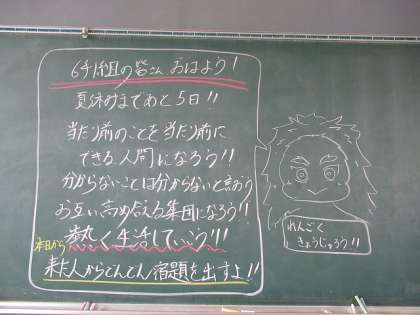 6年1組の皆さん おはよう!
夏休みまであと5日!!
当たり前のことを当たり前に
できる人間になろう!!
分からないことは分からないと言おう
お互い高め合える集団になろう!!
本日から 熱く生活していこう!!!
来た人からてんてん宿題を出すよ!!
れんごく
きょうじゅろう!!